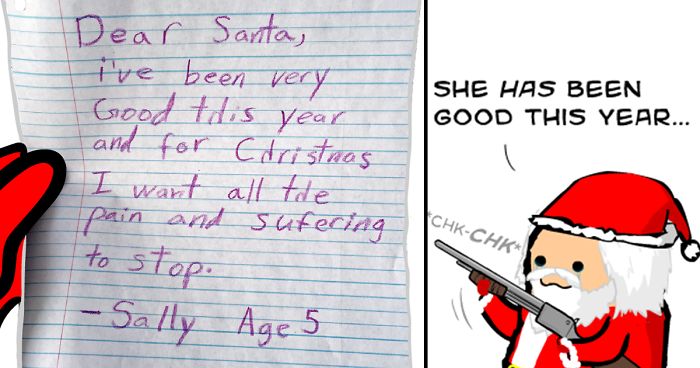 Dear Santa,
i've been very
Good tdis year
and for Cdristmas
I want all tde
pain and sufering
to stop.
-Sally Age 5
SHE HAS BEEN
GOOD THIS YEAR...
*CHK-CHK*